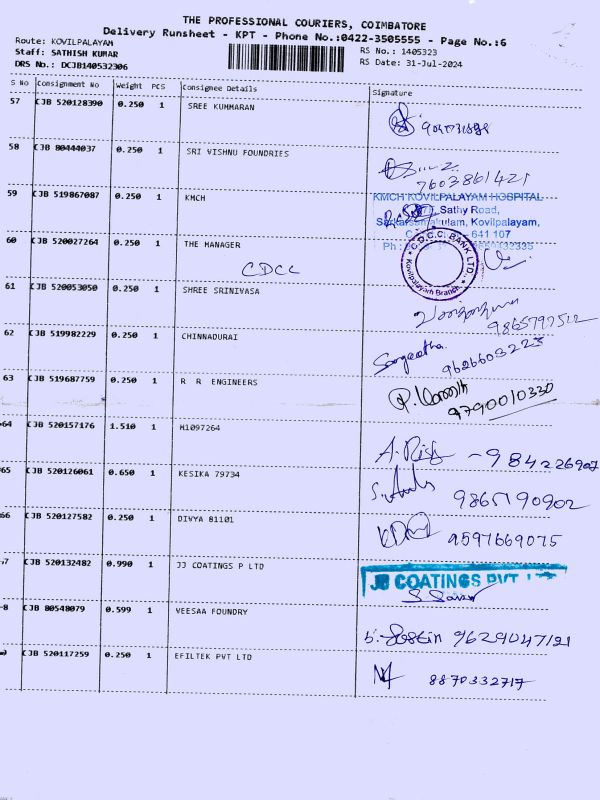 THE PROFESSIONAL COURIERS, COIMBATORE
Delivery Runsheet - KPT - Phone No.:0422-3505555 - Page No.:6
Route: KOVILPALAYAM
RS No.: 1405323
Staff: SATHISH KUMAR
RS Date: 31-Jul-2024
DRS No.: DCJB140532306
S No Consignment No Weight PCS Consignee Details Signature
57 CJB 520128390 0.250 1 SREE KUMMARAN
58 CJB 80444037 0.250 1 SRI VISHNU FOUNDRIES
7603861421
59 CJB 519867087 0.250 1 KMCH
KMCH KOVILPALAYAM HOSPITAL
Sathy Road,
Kovilpalayam,
641 107
60 CJB 520027264 0.250 1 THE MANAGER
CDCC
C.D.C.C. BANK LTD
Kovilpalayam Branch
61 CJB 520053050 0.250 1 SHREE SRINIVASA
62 CJB 519982229 0.250 1 CHINNADURAI
Sangeetha
9626603223
63 CJB 519687759 0.250 1 R R ENGINEERS
9790010330
64 CJB 520157176 1.510 1 H1097264
65 CJB 520126061 0.650 1 KESIKA 79734
9865190902
66 CJB 520127582 0.250 1 DIVYA 81101
9597669075
CJB 520132482 0.990 1 JJ COATINGS P LTD
COATINGS PVT
CJB 80548079 0.599 1 VEESAA FOUNDRY
9629047121
CJB 520117259 0.250 1 EFILTEK PVT LTD
8870332717